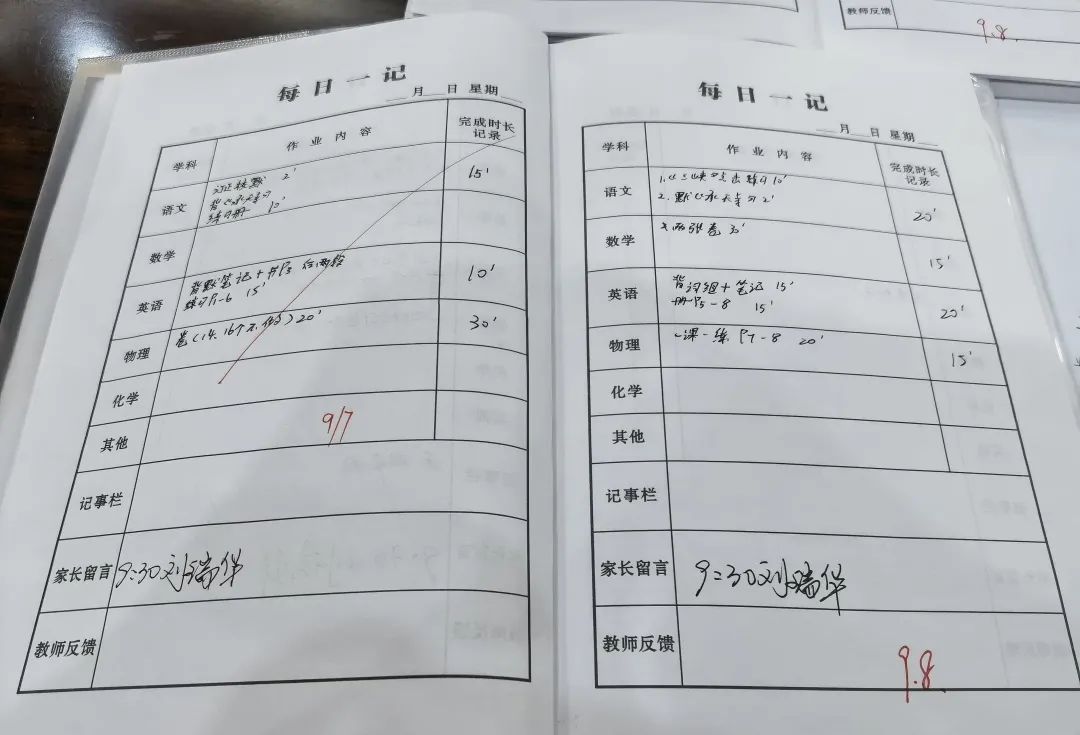 教师反馈
9.8.
每日一记
月 日 星期
学科
作业内容
完成时长记录
语文
订正校默 2'
背《承天寺》
练习册 10'
15'
数学
英语
背默笔记+册P5 后两栏
练习P1-6 15'
10'
物理
卷(14.16个不做)20'
30'
化学
其他
9/7
记事栏
家长留言
9:30刘瑞华
教师反馈
每日一记
月 日 星期
学科
作业内容
完成时长记录
语文
1.《三峡》点击练习10'
2.默《承天寺》2'
20'
数学
两张卷 30'
15'
英语
背词组+笔记 15'
册P5-8 15'
20'
物理
一课一练P7-8 20'
15'
化学
其他
记事栏
家长留言
9:30刘瑞华
教师反馈
9.8.